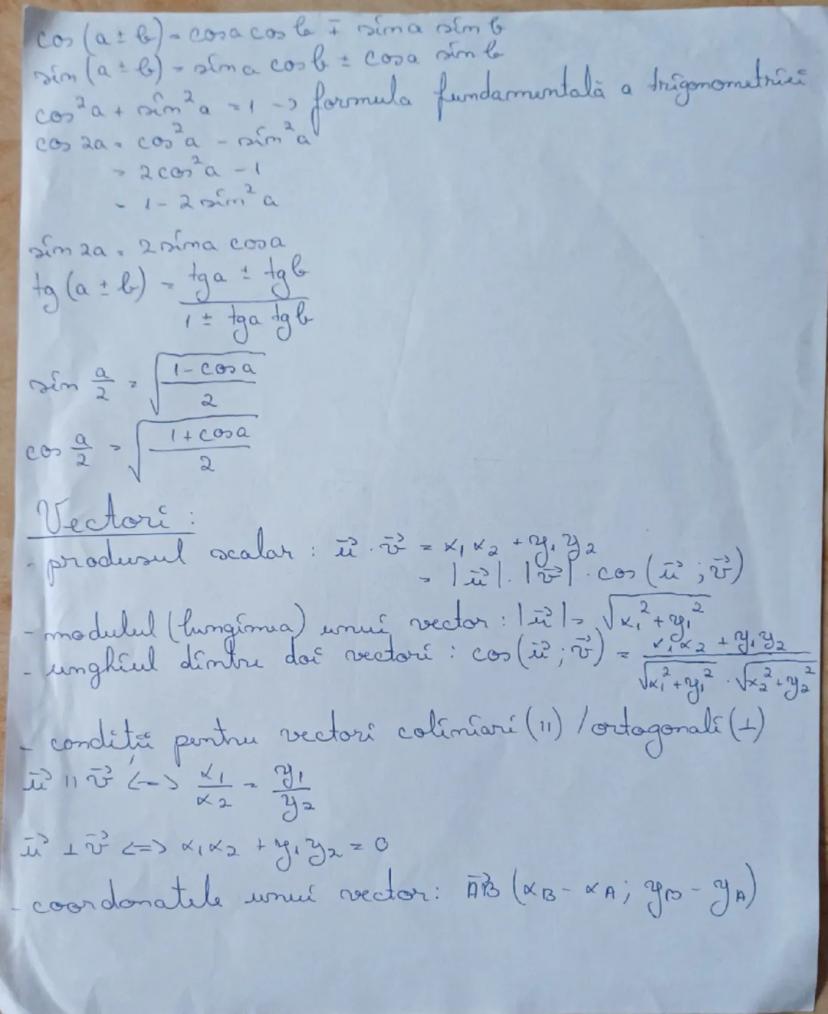 cos(a ± b) = cosa cosb ∓ sina sinb
sin(a ± b) = sina cosb ± cosa sinb
cos²a + sin²a = 1 → formula fundamentală a trigonometriei
cos 2a = cos²a - sin²a
= 2cos²a - 1
= 1 - 2 sin²a
sin 2a = 2 sina cosa
tg(a ± b) = (tga ± tgb) / (1 ± tga tgb)
sin a/2 = √((1 - cosa)/2)
cos a/2 = √((1 + cosa)/2)
Vectori:
- produsul scalar : u⃗ · v⃗ = x₁x₂ + y₁y₂
= |u⃗| · |v⃗| · cos(u⃗ ; v⃗)
- modulul (lungimea) unui vector : |u⃗| = √(x₁² + y₁²)
- unghiul dintre doi vectori : cos(u⃗ ; v⃗) = (x₁x₂ + y₁y₂) / (√(x₁² + y₁²) · √(x₂² + y₂²))
- condiții pentru vectori coliniari (||) / ortagonali (⊥)
u⃗ || v⃗ <=> x₁/x₂ = y₁/y₂
u⃗ ⊥ v⃗ <=> x₁x₂ + y₁y₂ = 0
- coordonatele unui vector: AB⃗ (x_B - x_A ; y_B - y_A)